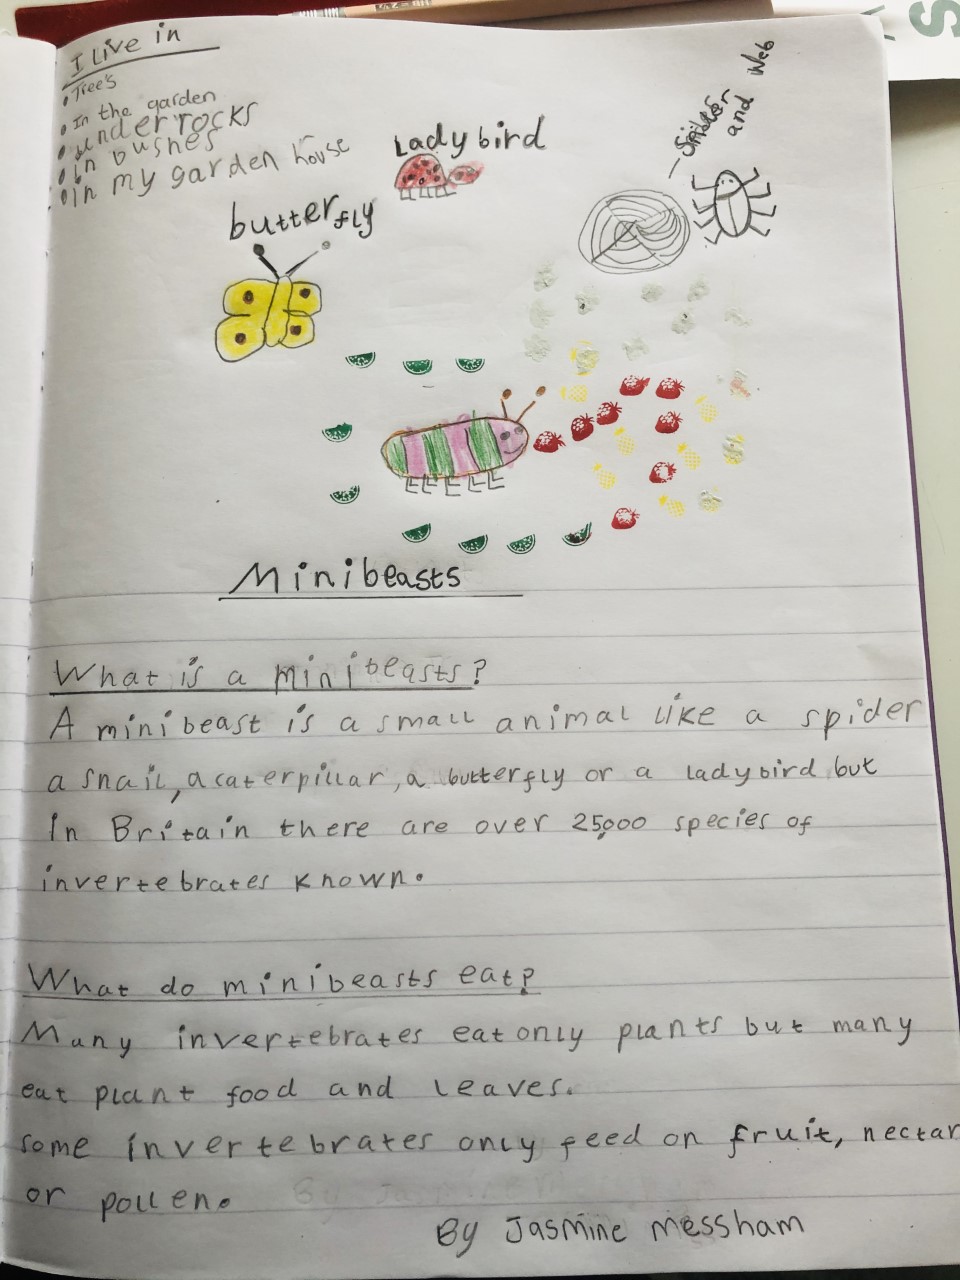 I live in
• Tree's
• In the garden
• under rocks
• in bushes
• in my garden house
Ladybird
butterfly
and Web
Minibeasts
What is a minibeasts?
A minibeast is a small animal like a spider
a snail, a caterpillar, a butterfly or a ladybird but
In Britain there are over 25,000 species of
invertebrates known.
What do minibeasts eat?
Many invertebrates eat only plants but many
eat plant food and leaves.
some invertebrates only feed on fruit, nectar
or pollen.
By Jasmine Messham